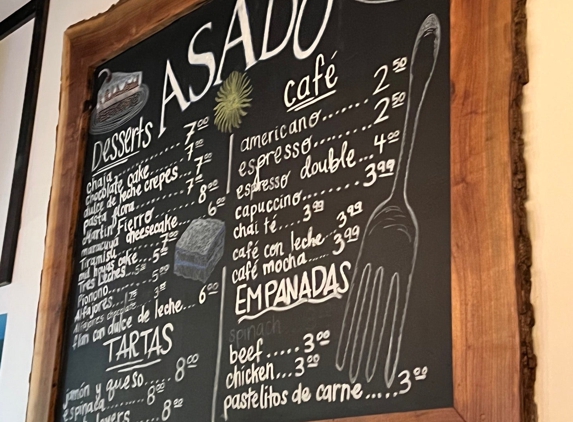 ASADO
Desserts
chajá 7⁰⁰
chocolate cake
dulce de leche crepes... 7
pasta flora
Martin Fierro 8⁰⁰
maracuya cheesecake... 6⁰⁰
Tiramisu
mil hojas cake
Tres Leches
Pionono
Alfajores
Alfajores chocolate
flan con dulce de leche... 6⁰⁰
TARTAS
jamón y queso..... 8⁰⁰
espinaca 8⁰⁰
8⁰⁰
café
americano...... 2⁵⁰
espresso....... 2⁵⁰
espresso double... 4⁰⁰
capuccino...... 3⁹⁹
chai té.... 3⁹⁹
café con leche 3⁹⁹
café mocha.... 3⁹⁹
EMPANADAS
spinach
beef..... 3⁰⁰
chicken... 3⁰⁰
pastelitos de carne..... 3⁰⁰